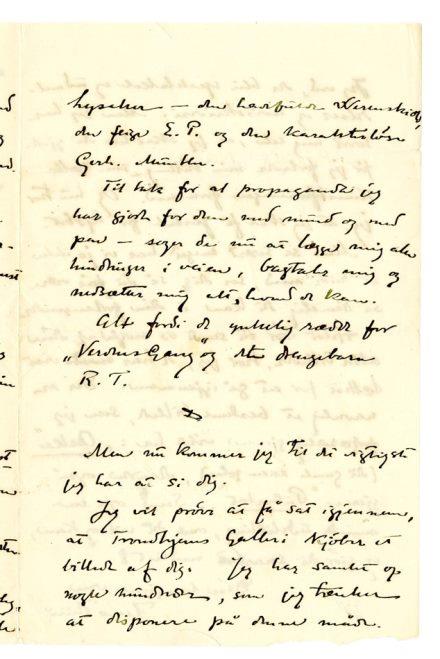 hyklere — den hadefulde Werenskiold,
den feige E. P. og den karakterløse
Gerh. Munthe.
Til tak for al propaganda jeg
har gjort for dem med mund og med
pen — søger de nu at lægge mig alle
hindringer i veien, bagtale mig og
nedsætter mig alt, hvad de kan.
Alt fordi de ynkelig rædde for
„Verdens Gang" og den drengebarn
R. T.
Men nu kommer jeg til det vigtigste
jeg har at si dig.
Jeg vil prøve at få sat igjennem,
at Trondhjems Galleri kjøber et
billede af dig. Jeg har samlet op
nogle hundreder, som jeg tænker
at disponere på denne måde.